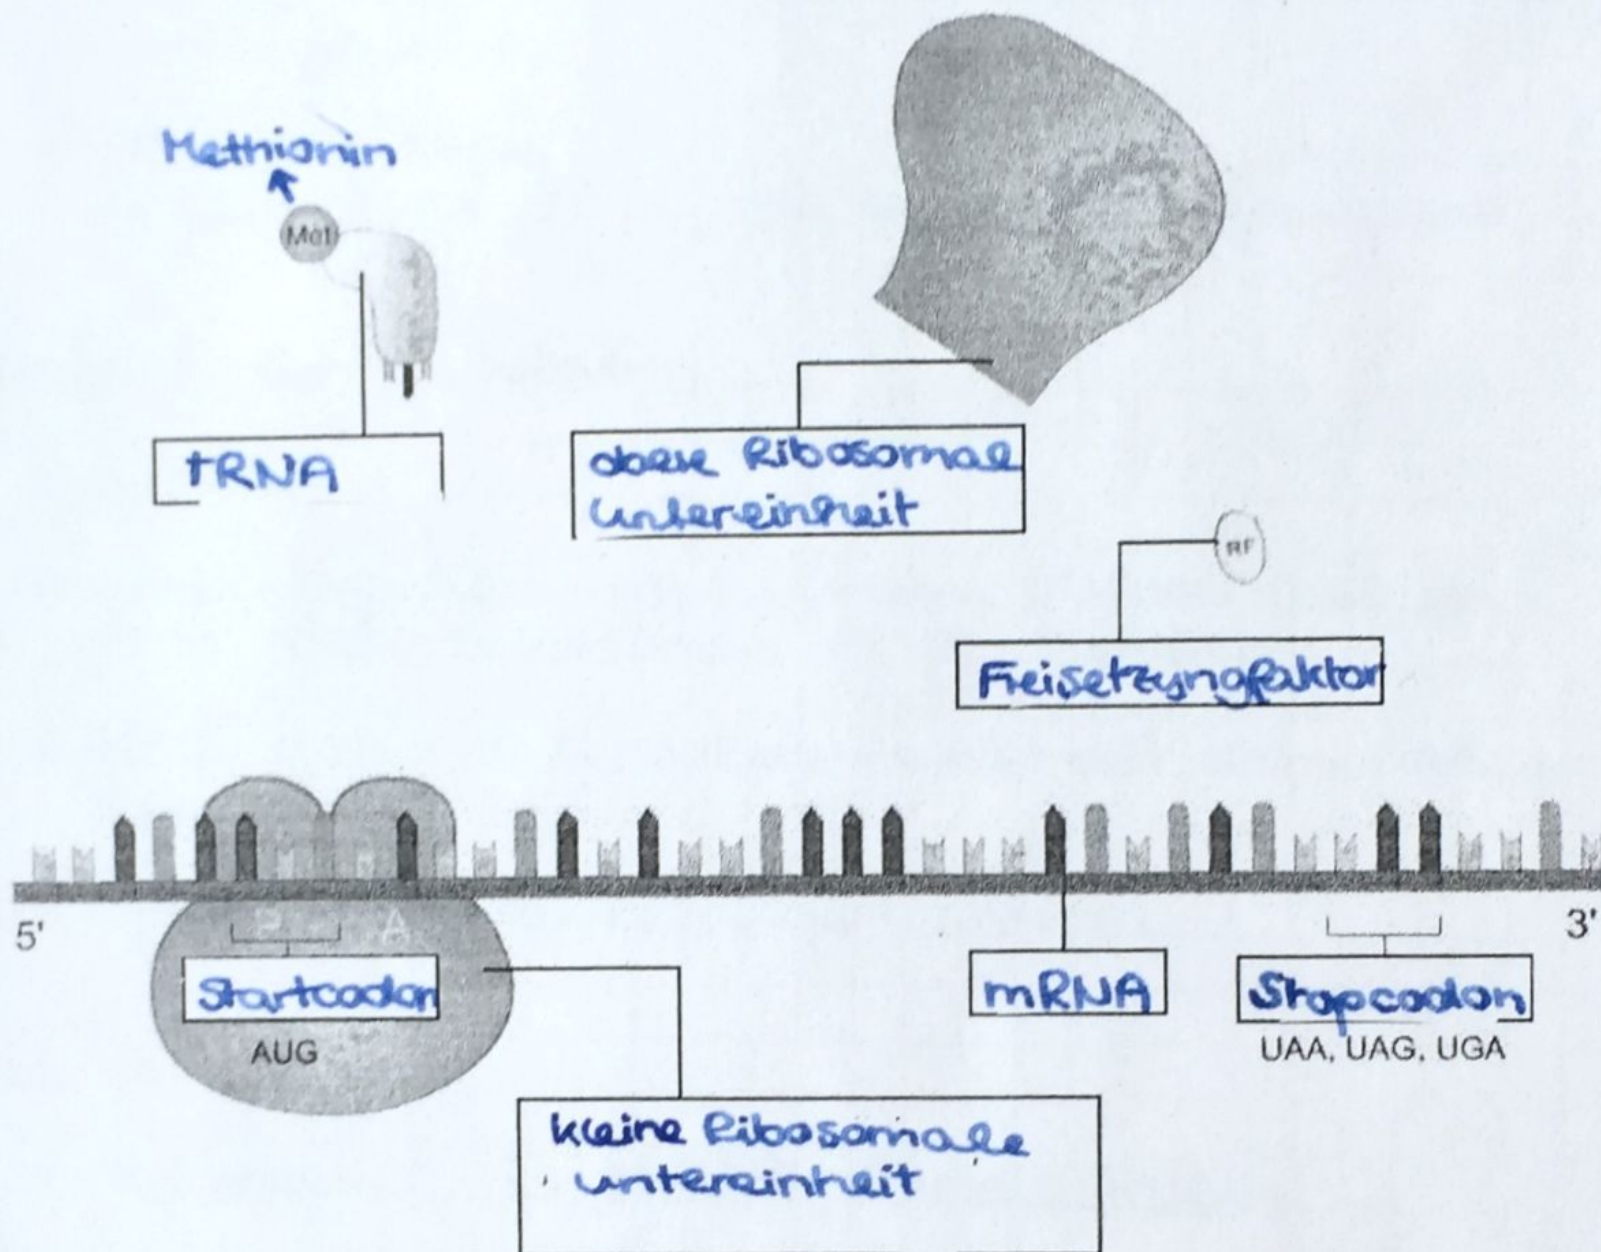 Methionin
Met
tRNA
obere Ribosomal
Untereinheit
RF
Freisetzungfaktor
P A
5'
3'
Startcodon
mRNA
Stopcodon
AUG
UAA, UAG, UGA
kleine Ribosomale
untereinheit